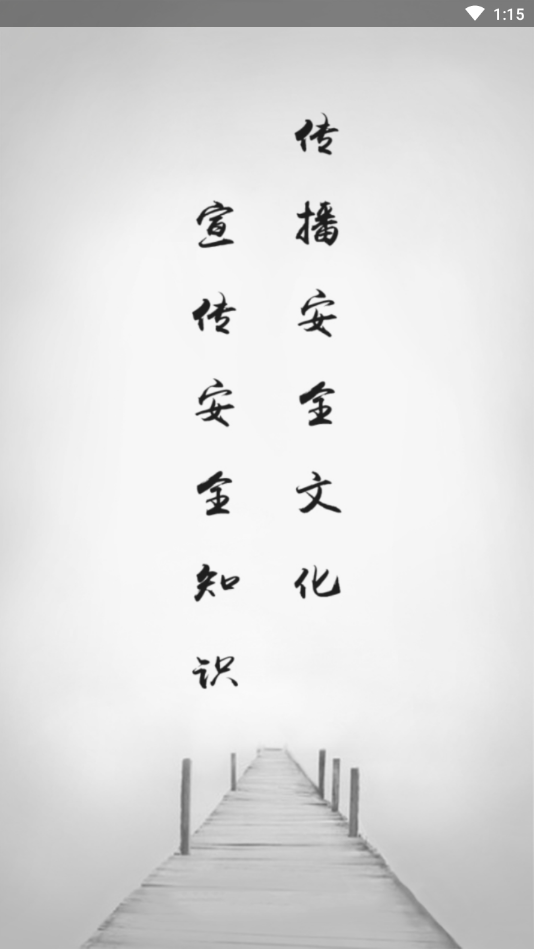 1:15
传播安全文化
宣传安全知识